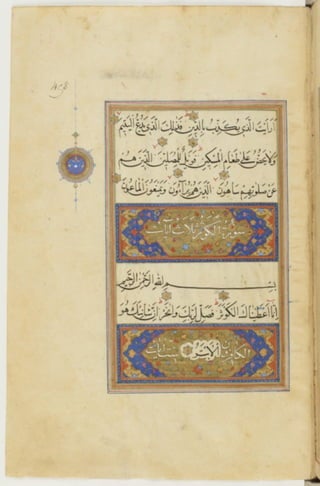 أرأيت الذي يكذب بالدين فذلك الذي يدع اليتيم
ولا يحض على طعام المسكين فويل للمصلين الذين هم
عن صلوتهم ساهون الذين هم يراءون ويمنعون الماعون
سورة الكوثر ثلاث آيات
بسم الله الرحمن الرحيم
إنا أعطيناك الكوثر فصل لربك وانحر إن شانئك هو
الأبتر